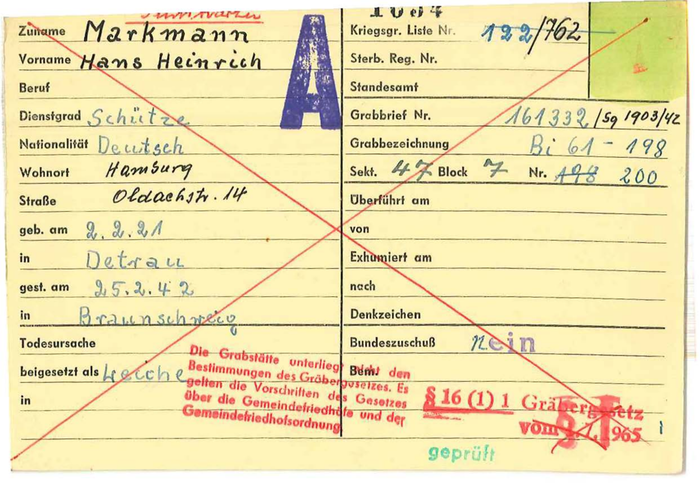 1034
Zuname Markmann
Vorname Hans Heinrich
Beruf
Dienstgrad Schütze
Nationalität Deutsch
Wohnort Hamburg
Straße Oldachstr. 14
geb. am 2.2.21
in Detrau
gest. am 25.2.42
in Braunschweig
Todesursache
beigesetzt als Leiche
in
A
Kriegsgr. Liste Nr. 122/762
Sterb. Reg. Nr.
Standesamt
Grabbrief Nr. 161332/Sg 1903/42
Grabbezeichnung Bi 61 - 198
Sekt. 47 Block 7 Nr. 198 200
Überführt am
von
Exhumiert am
nach
Denkzeichen
Bundeszuschuß nein
Bem.
Die Grabstätte unterliegt nicht den
Bestimmungen des Gräbergesetzes. Es
gelten die Vorschriften des Gesetzes
über die Gemeindefriedhöfe und der
Gemeindefriedhofsordnung
§ 16 (1) 1 Gräbergesetz
vom 1.7.1965
geprüft